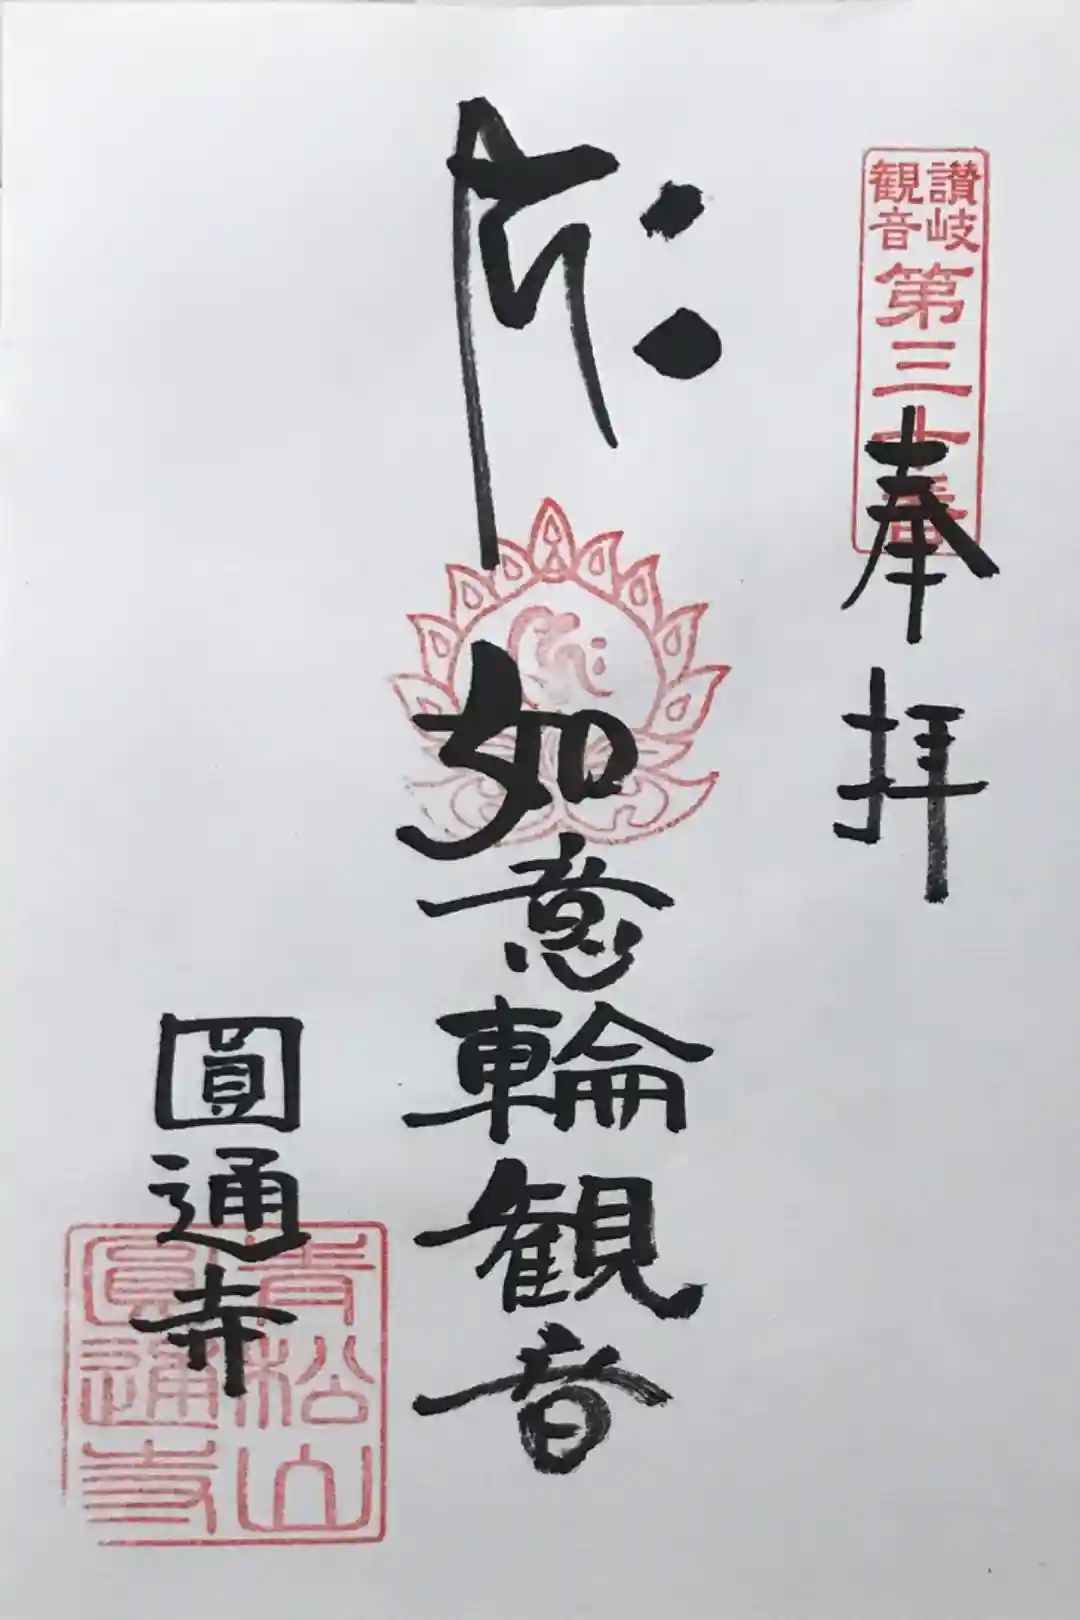 讃岐
観音
第三十番
奉拝
ह्रीः
如意輪観音
圓通寺
青松山
圓通寺